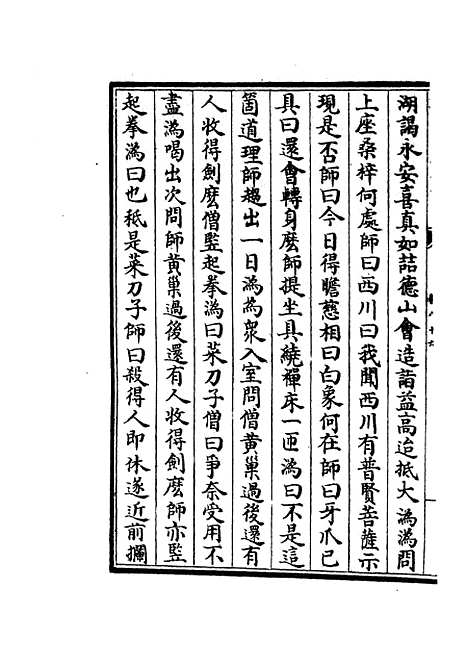 湖謁永安喜真如喆德山會造詣益高迨抵大溈溈問
上座桑梓何處師曰西川曰我聞西川有普賢菩薩示
現是否師曰今日得瞻慈相曰白象何在師曰牙爪已
具曰還會轉身麽師提坐具繞禪床一匝溈曰不是這
箇道理師趨出一日溈為衆入室問僧黃巢過後還有
人收得劍麽僧豎起拳溈曰菜刀子僧曰爭奈受用不
盡溈喝出次問師黃巢過後還有人收得劍麽師亦豎
起拳溈曰也秪是菜刀子師曰殺得人即休遂近前攔